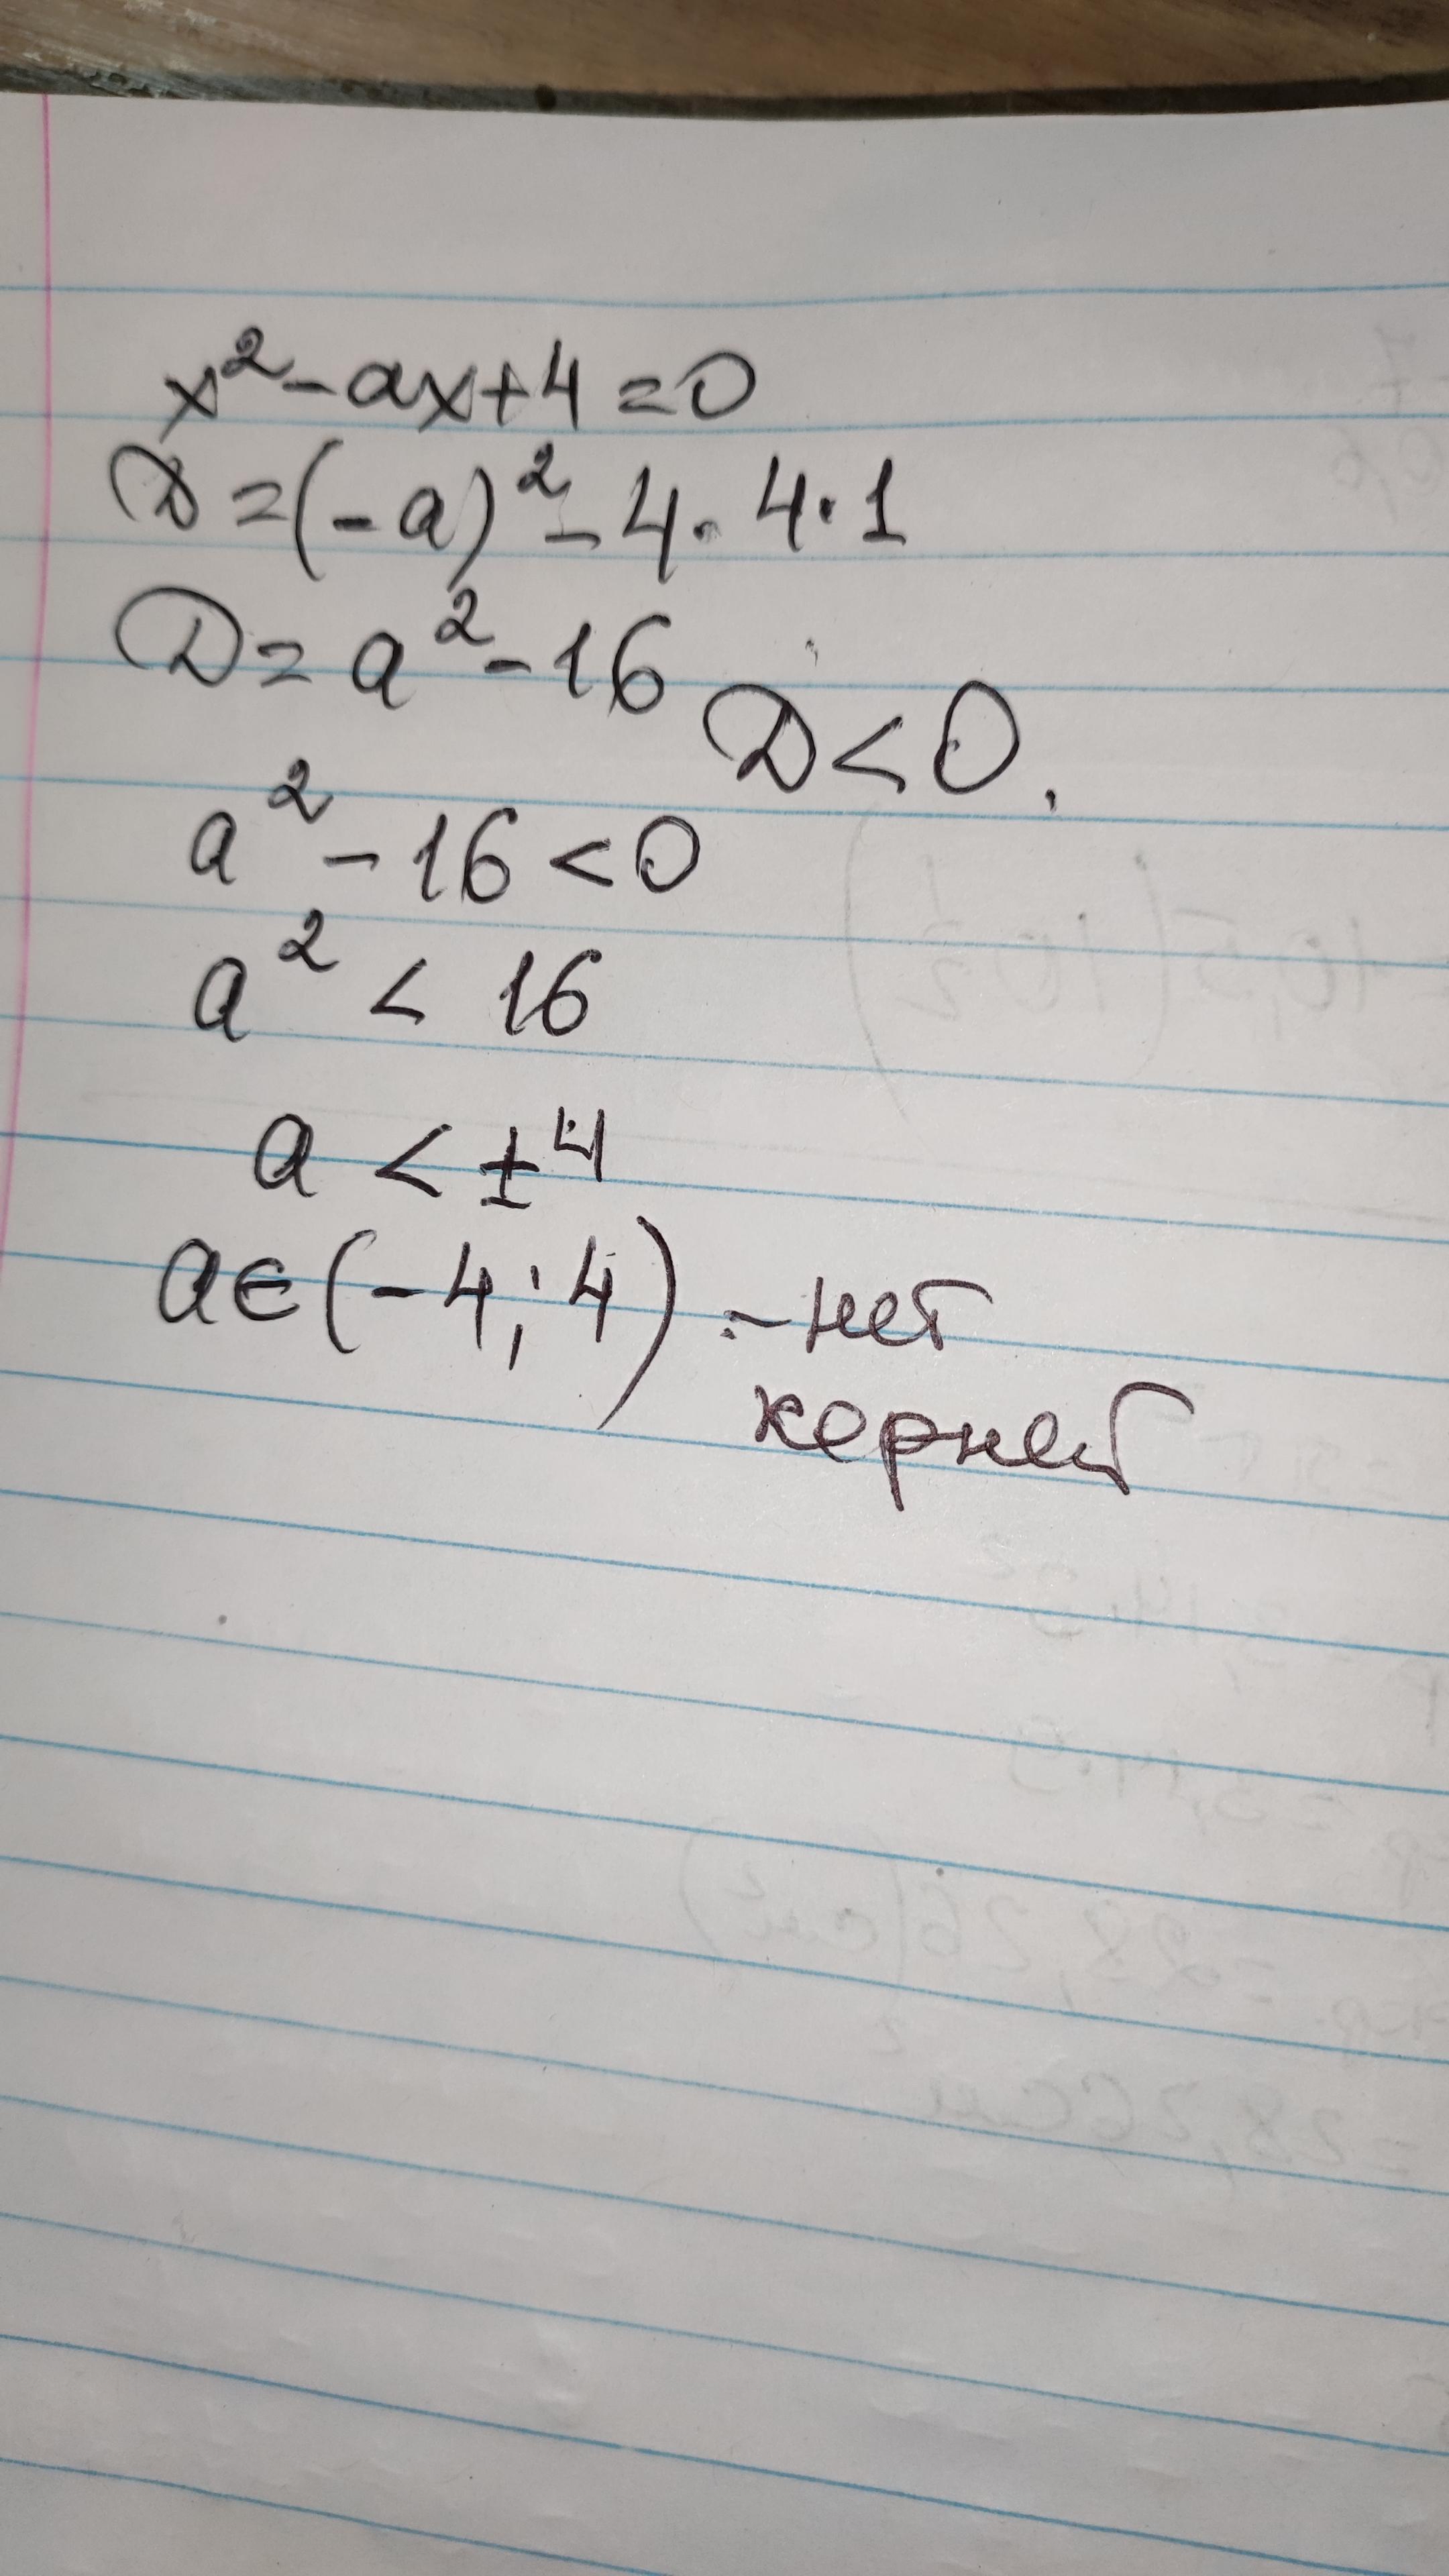 x² - ax + 4 = 0
D = (-a)² - 4 · 4 · 1
D = a² - 16
D < 0.
a² - 16 < 0
a² < 16
a < ±4
a ∈ (-4; 4) - нет
корней